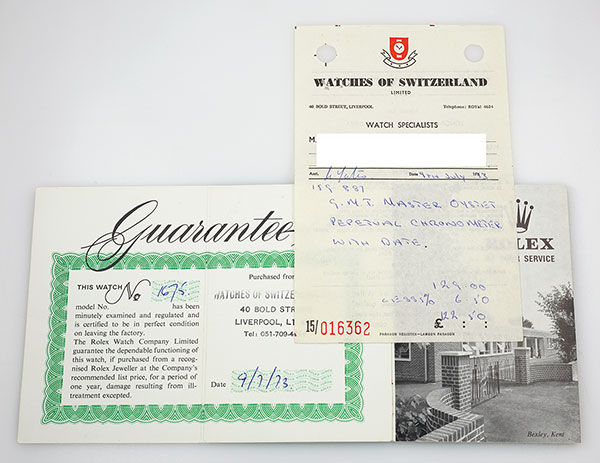 WATCHES OF SWITZERLAND
LIMITED
40 BOLD STREET, LIVERPOOL
Telephone: ROYal 4624
WATCH SPECIALISTS
M.
Asst.
Date 9TH July
159 887
G.M.T. MASTER OYSTER
PERPETUAL CHRONOMETER
WITH DATE.
129.00
LESS 5% 6.50
122.50
15/016362
£ : :
PARAGON REGISTER—LAMSON PARAGON
Guarantee
THIS WATCH No 1675
model No. has been
minutely examined and regulated and
is certified to be in perfect condition
on leaving the factory.
The Rolex Watch Company Limited
guarantee the dependable functioning of
this watch, if purchased from a recog-
nised Rolex Jeweller at the Company's
recommended list price, for a period of
one year, damage resulting from ill-
treatment excepted.
Purchased from
WATCHES OF SWITZER
40 BOLD STREE
LIVERPOOL, L1
Tel: 051-709-4
Date 9/7/73
LEX
SERVICE
Bexley, Kent